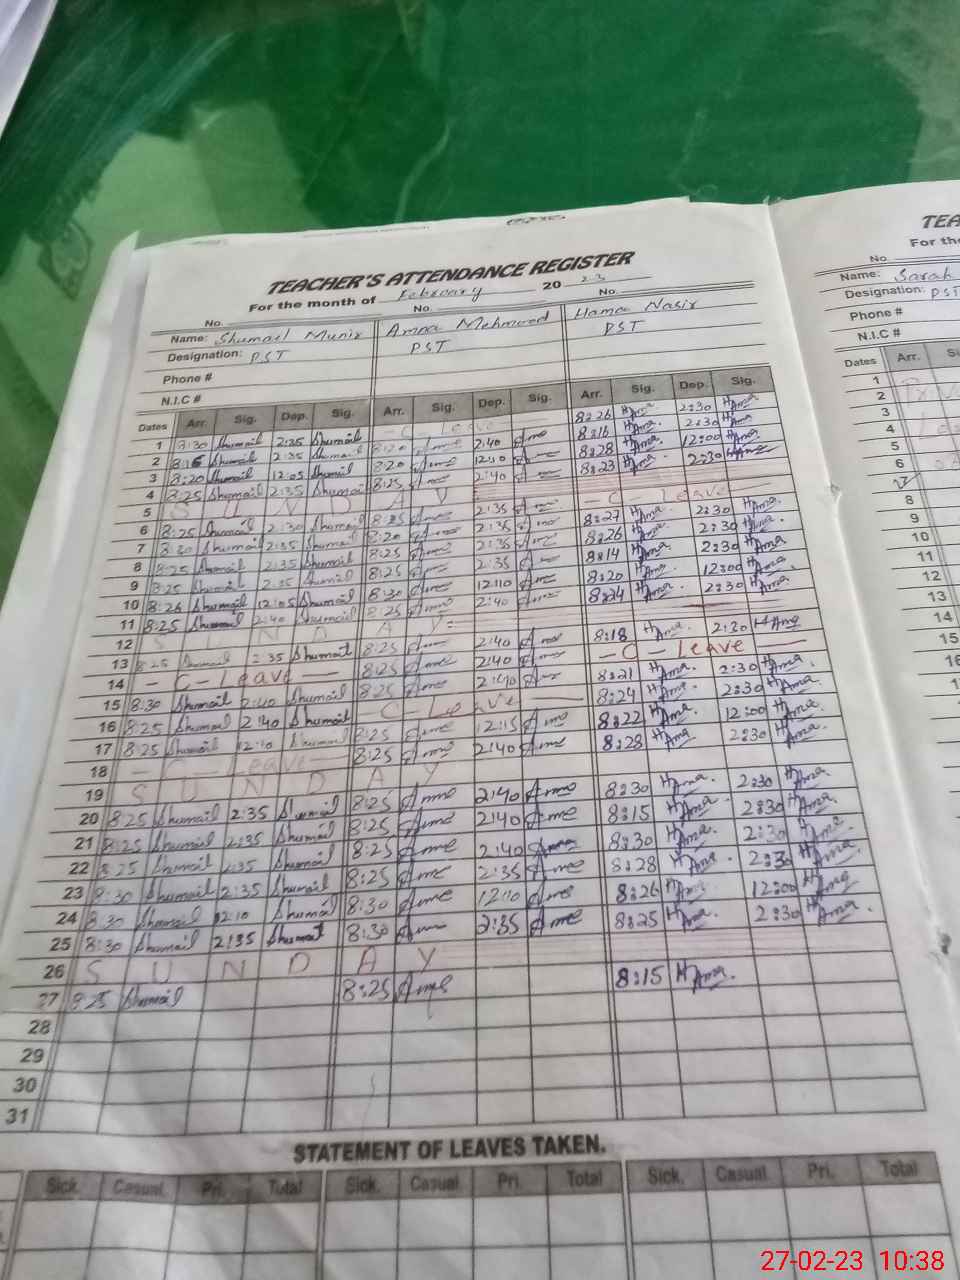 TEACHER'S ATTENDANCE REGISTER
For the month of February 20 23
No. No. No.
Name: Shumail Munir Amna Mehmood Hama Nasir
Designation: PST PST PST
Phone #
N.I.C #
Dates Arr. Sig. Dep. Sig. Arr. Sig. Dep. Sig. Arr. Sig. Dep. Sig.
1 8:30 Shumail 2:35 Shumail - C Leave - 8:26 Hama 2:30 Hama
2 8:15 Shumail 2:35 Shumail 8:20 Ame 2:40 Ame 8:16 Hama. 2:30 Hama
3 8:20 Shumail 12:05 Shumail 8:20 Ame 12:10 Ame 8:28 Hama. 12:00 Hama
4 8:25 Shumail 2:35 Shumail 8:25 Ame 2:40 Ame 8:23 Hama. 2:30 Hama
5 S U N D A Y
6 8:25 Shumail 2:30 Shumail 8:25 Ame 2:35 Ame - C - Leave -
7 8:30 Shumail 2:35 Shumail 8:20 Ame 2:35 Ame 8:27 Hama. 2:30 Hama.
8 8:25 Shumail 2:35 Shumail 8:25 Ame 2:35 Ame 8:26 Hama. 2:30 Hama.
9 8:25 Shumail 2:35 Shumail 8:25 Ame 2:35 Ame 8:14 Hama. 2:30 Hama.
10 8:26 Shumail 12:05 Shumail 8:30 Ame 12:10 Ame 8:20 Hama. 12:00 Hama.
11 8:25 Shumail 2:40 Shumail 8:25 Ame 2:40 Ame 8:24 Hama. 2:30 Hama.
12 S U N D A Y
13 8:25 Shumail 2:35 Shumail 8:25 Ame 2:40 Ame 8:18 Hama. 2:30 Hama
14 - C - Leave - 8:25 Ame 2:40 Ame - C - Leave -
15 8:30 Shumail 2:40 Shumail 8:25 Ame 2:40 Ame 8:21 Hama. 2:30 Hama.
16 8:25 Shumail 2:40 Shumail C Leave 8:24 Hama. 2:30 Hama.
17 8:25 Shumail 12:10 Shumail 8:25 Ame 12:15 Ame 8:22 Hama. 12:00 Hama.
18 - C - Leave - 8:25 Ame 2:40 Ame 8:28 Hama 2:30 Hama.
19 S U N D A Y
20 8:25 Shumail 2:35 Shumail 8:25 Ame 2:40 Ame 8:30 Hama. 2:30 Hama.
21 8:25 Shumail 2:35 Shumail 8:25 Ame 2:40 Ame 8:15 Hama. 2:30 Hama.
22 8:25 Shumail 2:35 Shumail 8:25 Ame 2:40 Ame 8:30 Hama. 2:30 Hama
23 8:30 Shumail 2:35 Shumail 8:25 Ame 2:35 Ame 8:28 Hama. 2:30 Hama.
24 8:30 Shumail 12:10 Shumail 8:30 Ame 12:10 Ame 8:26 Hama. 12:00 Hama
25 8:30 Shumail 2:35 Shumail 8:30 Ame 2:35 Ame 8:25 Hama. 2:30 Hama.
26 S U N D A Y
27 8:25 Shumail 8:25 Ame 8:15 Hama.
28
29
30
31
STATEMENT OF LEAVES TAKEN.
Sick. Casual. Pri. Total Sick. Casual Pri. Total Sick. Casual Pri. Total
TEA
For the
No
Name: Sarah
Designation: PST
Phone #
N.I.C #
Dates Arr.
1
2
3
4
5
6
7
8
9
10
11
12
13
14
15
16
27-02-23 10:38